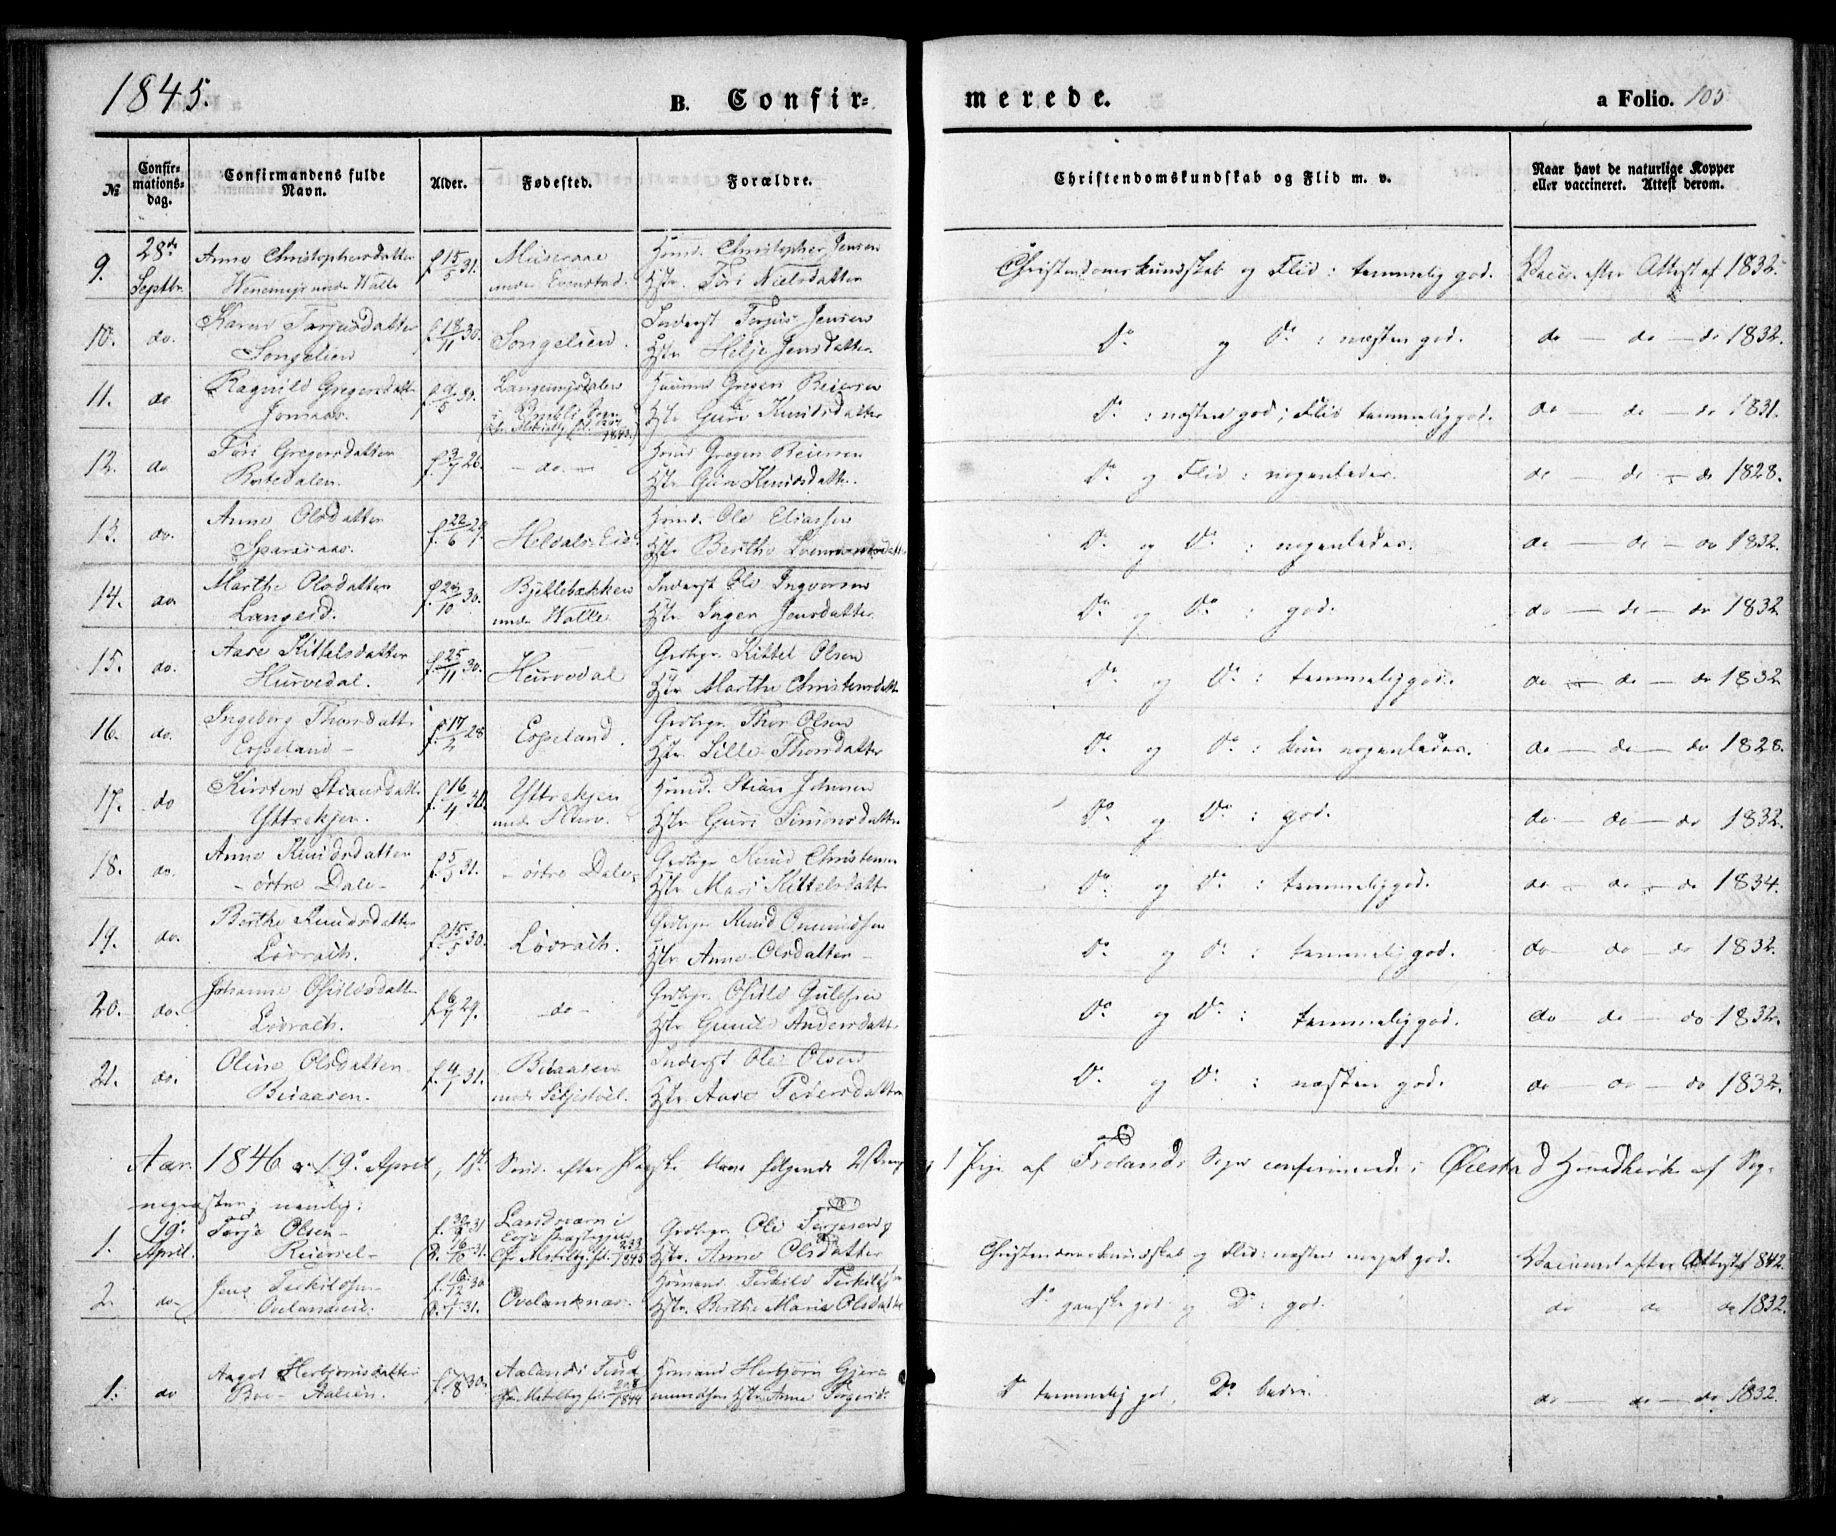 1845.
B. Confir-
merede.
a Folio. 103
№
Confir-
mations-
dag.
Confirmandens fulde
Navn.
Alder.
Fødested.
Forældre.
Christendomskundskab og Flid m. v.
Naar havt de naturlige Kopper
eller vaccineret. Attest derom.
9. 28de Septbr. Anne Christophersdatter
under Walle
f. 15/5 31.
Huusmd. Christopher Jensen
Hstr. Töri Nielsdatter
Christendomskundskab og Flid: temmelig god. Vacc. efter Attest af 1832.
10. do. Karen Terjusdatter
Songelien
f. 18/11 30. Songelien.
Inderst Terjus Jensen
Hstr. Helje Jensdatter.
Do og Do: næsten god. do — do — do 1832.
11. do Ragnild Gregersdatt.
Jomaas.
Hstr. Guro Knudsdatter
Do: næsten god; Flid temmelig god. do do — do 1831.
12. do Töri Gregersdatter
f. 3/7 26. — do. —
Huusmd Gregers Reiersen
Hstr Guro Knudsdatter.
Do og Flid: nogenledes. do — do — do 1828.
13. do. Anne Olsdatter
f. 22/6 29. Heldals-Eie.
Huusmd. Ole Eliassen
Hstr Berthe
Do og Do: nogenledes. do — do — do 1832.
14. do. Marthe Olsdatter
Langerd.
Bjellebækken
under Walle
Inderst Ole Ingvorsen
Hstr Inger Jensdatter
Do og Do: god. do — do — do 1832
15. do. Aase Kittelsdatter
Hurvedal.
f. 25/11 30. Hurvedal
Grdbgr. Kittel Olsen
Hstr Marthe Christensdatt.
Do og Do: temmelig god. do — do — do 1832
16. do. Ingeborg Thorsdatt.
Espeland —
f. 17/2 28. Espeland.
Grdbgr. Thor Olsen
Hstr Sille Thorsdatter
Do og Do: kun nogenledes. do — do — do 1828.
17. do Kirsten Stiansdatt.
Yttrekjen.
f. 16/4 30. Yttrekjen
Huusmd. Stian Johnsen
Hstr Guri Simonsdatter
Do og Do: god. do — do — do 1832.
18. do. Anne Knudsdatter
— östre Dale —
f. 5/5 31. — östre Dale,
Grdbgr Knud Christensen
Hstr. Mari Kittelsdatt.
Do og Do: temmelig god. do — do — do 1834.
19. do. Berthe Knudsdatter
Lövrach.
f. 15/5 30. Lövrach.
Grdbgr. Knud Omundsen
Hstr Anne Olsdatter —
Do og Do: temmelig god. do — do — do 1832.
20. do. Johanne Osuldsdatt.
Lövrach.
— do —
Grdbgr. Osuld Gulufsen
Hstr Gunild Andersdatt.
Do og Do: temmelig god. do do — do 1832.
21. do. Oline Olsdatter
Buaasen.
f. 4/1 31. Buaasen
Inderst Ole Olsen
Hstr. Aase Pedersdatter
Do og Do: næsten god. do do — do 1832.
Aar 1846 19. April, 1ste Sönd. efter Paaske bleve følgende 2 Drenge, 1 Pige af Frolands Sogn confirmerede i Øiestad Hovedkirke af Sog-
nepræsten; nemlig:
1. 19. April. Terje Olsen
Landværn i
1845
Grdbgr. Ole Terjesen
Hstr. Anne Olsdatter
Christendomskundskab og Flid: næsten meget god. Vaccineret efter Attest af 1842.
2. do Jens Terkildsen
f. 6/12 30
Ovelandnæs.
Huusmand. Terkild Terkildsen
Hstr. Berthe Marie Olsdatter
Do ganske god og Do: god. do do do 1832.
1. do Aagot Herbjörnsdatter
f. 7/8 30.
1844
Huusmand Herbjörn
Hstr Anne
Do temmelig god, Do bedre. do — do — do 1832.